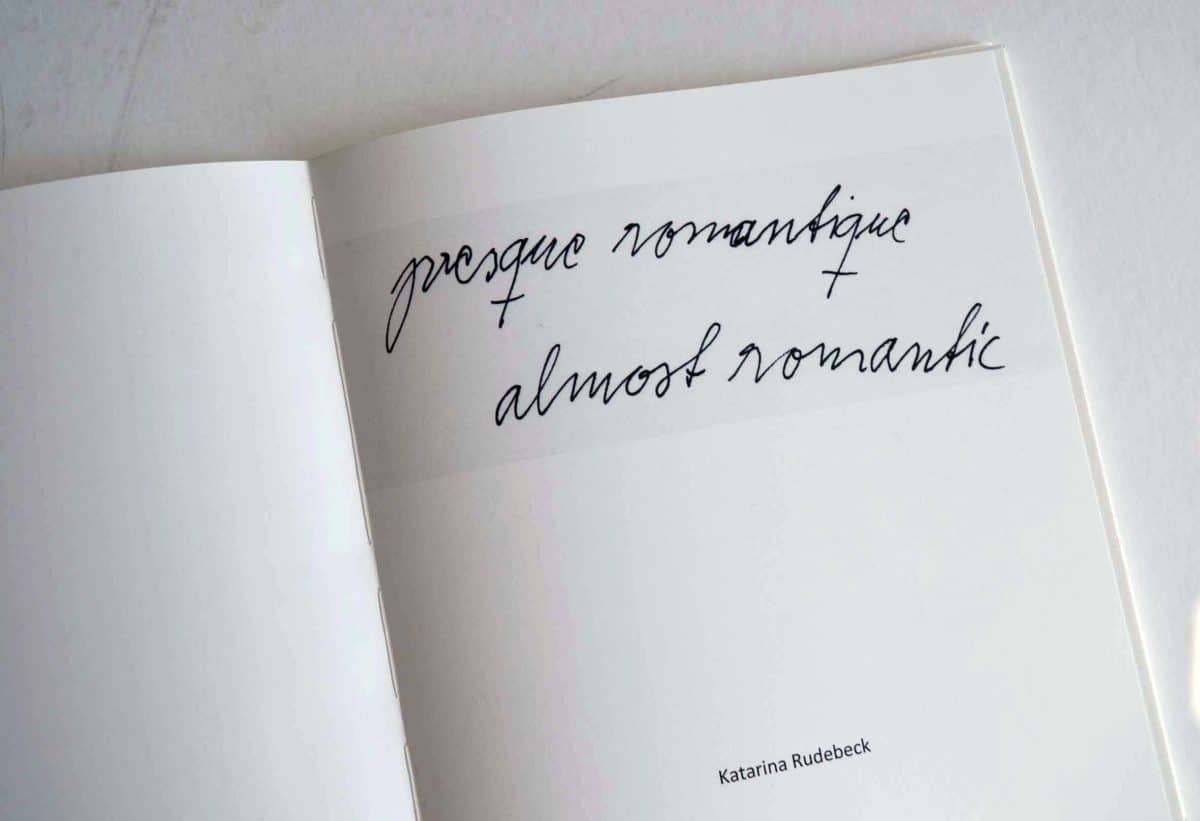 presque romantique
almost romantic
Katarina Rudebeck